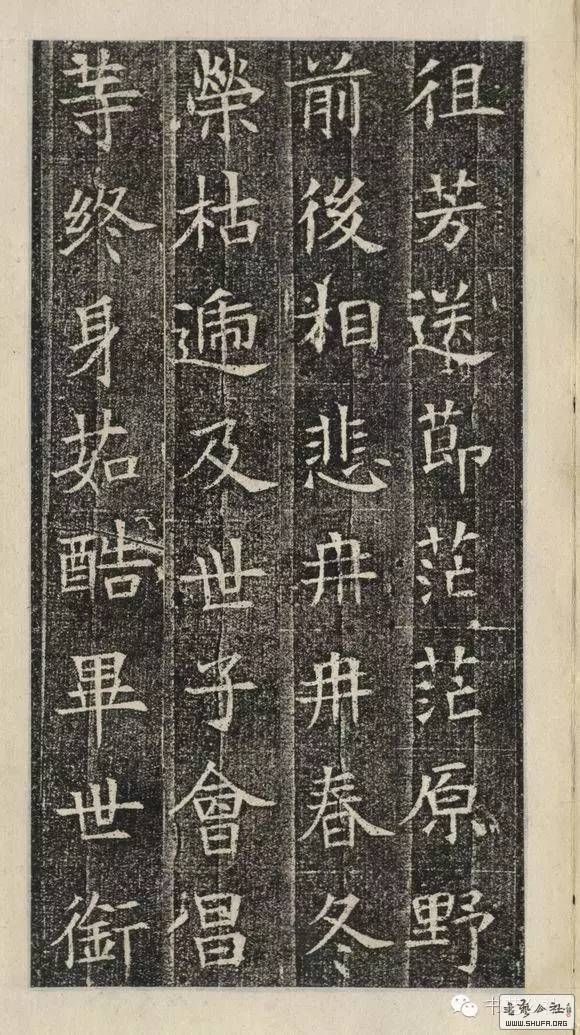 徂芳送節茫茫原野
前後相悲冉冉春冬
榮枯遞及世子會昌
等終身茹酷畢世銜
书
WWW.SHUFA.ORG